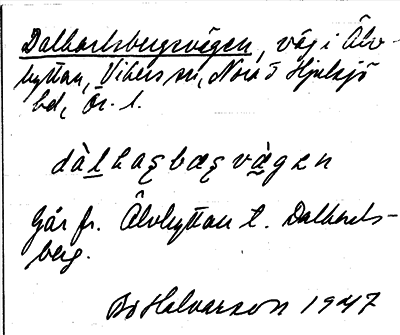 Dalkarlsbergsvägen, väg i Älv-
hyttan, Vikers sn, Nora o Hjulsjö
bd, Ör. l.
dàlkaʂbæʂvà̱gen
Går fr. Älvhyttan t. Dalkarls-
berg.
Bo Halvarson 1947